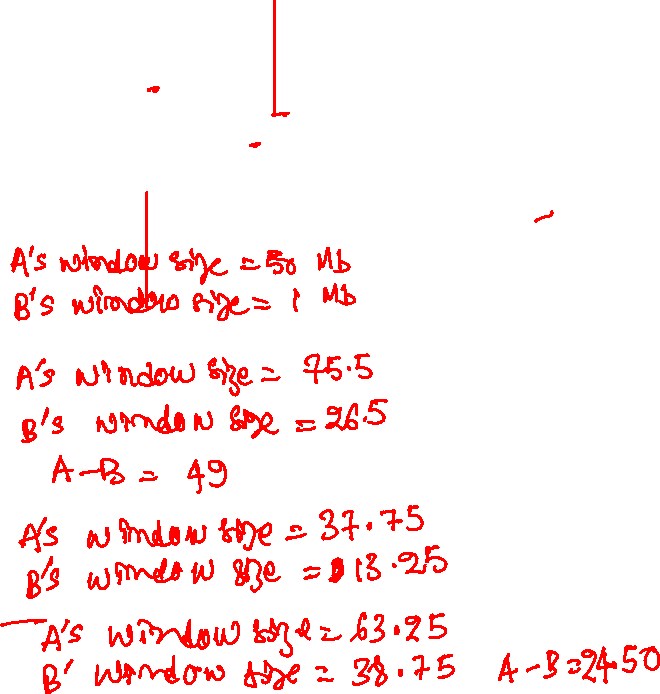 A's window size = 50 Mb
B's window size = 1 Mb
A's window size = 75.5
B's window size = 26.5
A-B = 49
A's window size = 37.75
B's window size = 13.25
A's window size = 63.25
B' window size = 38.75 A-B = 24.50